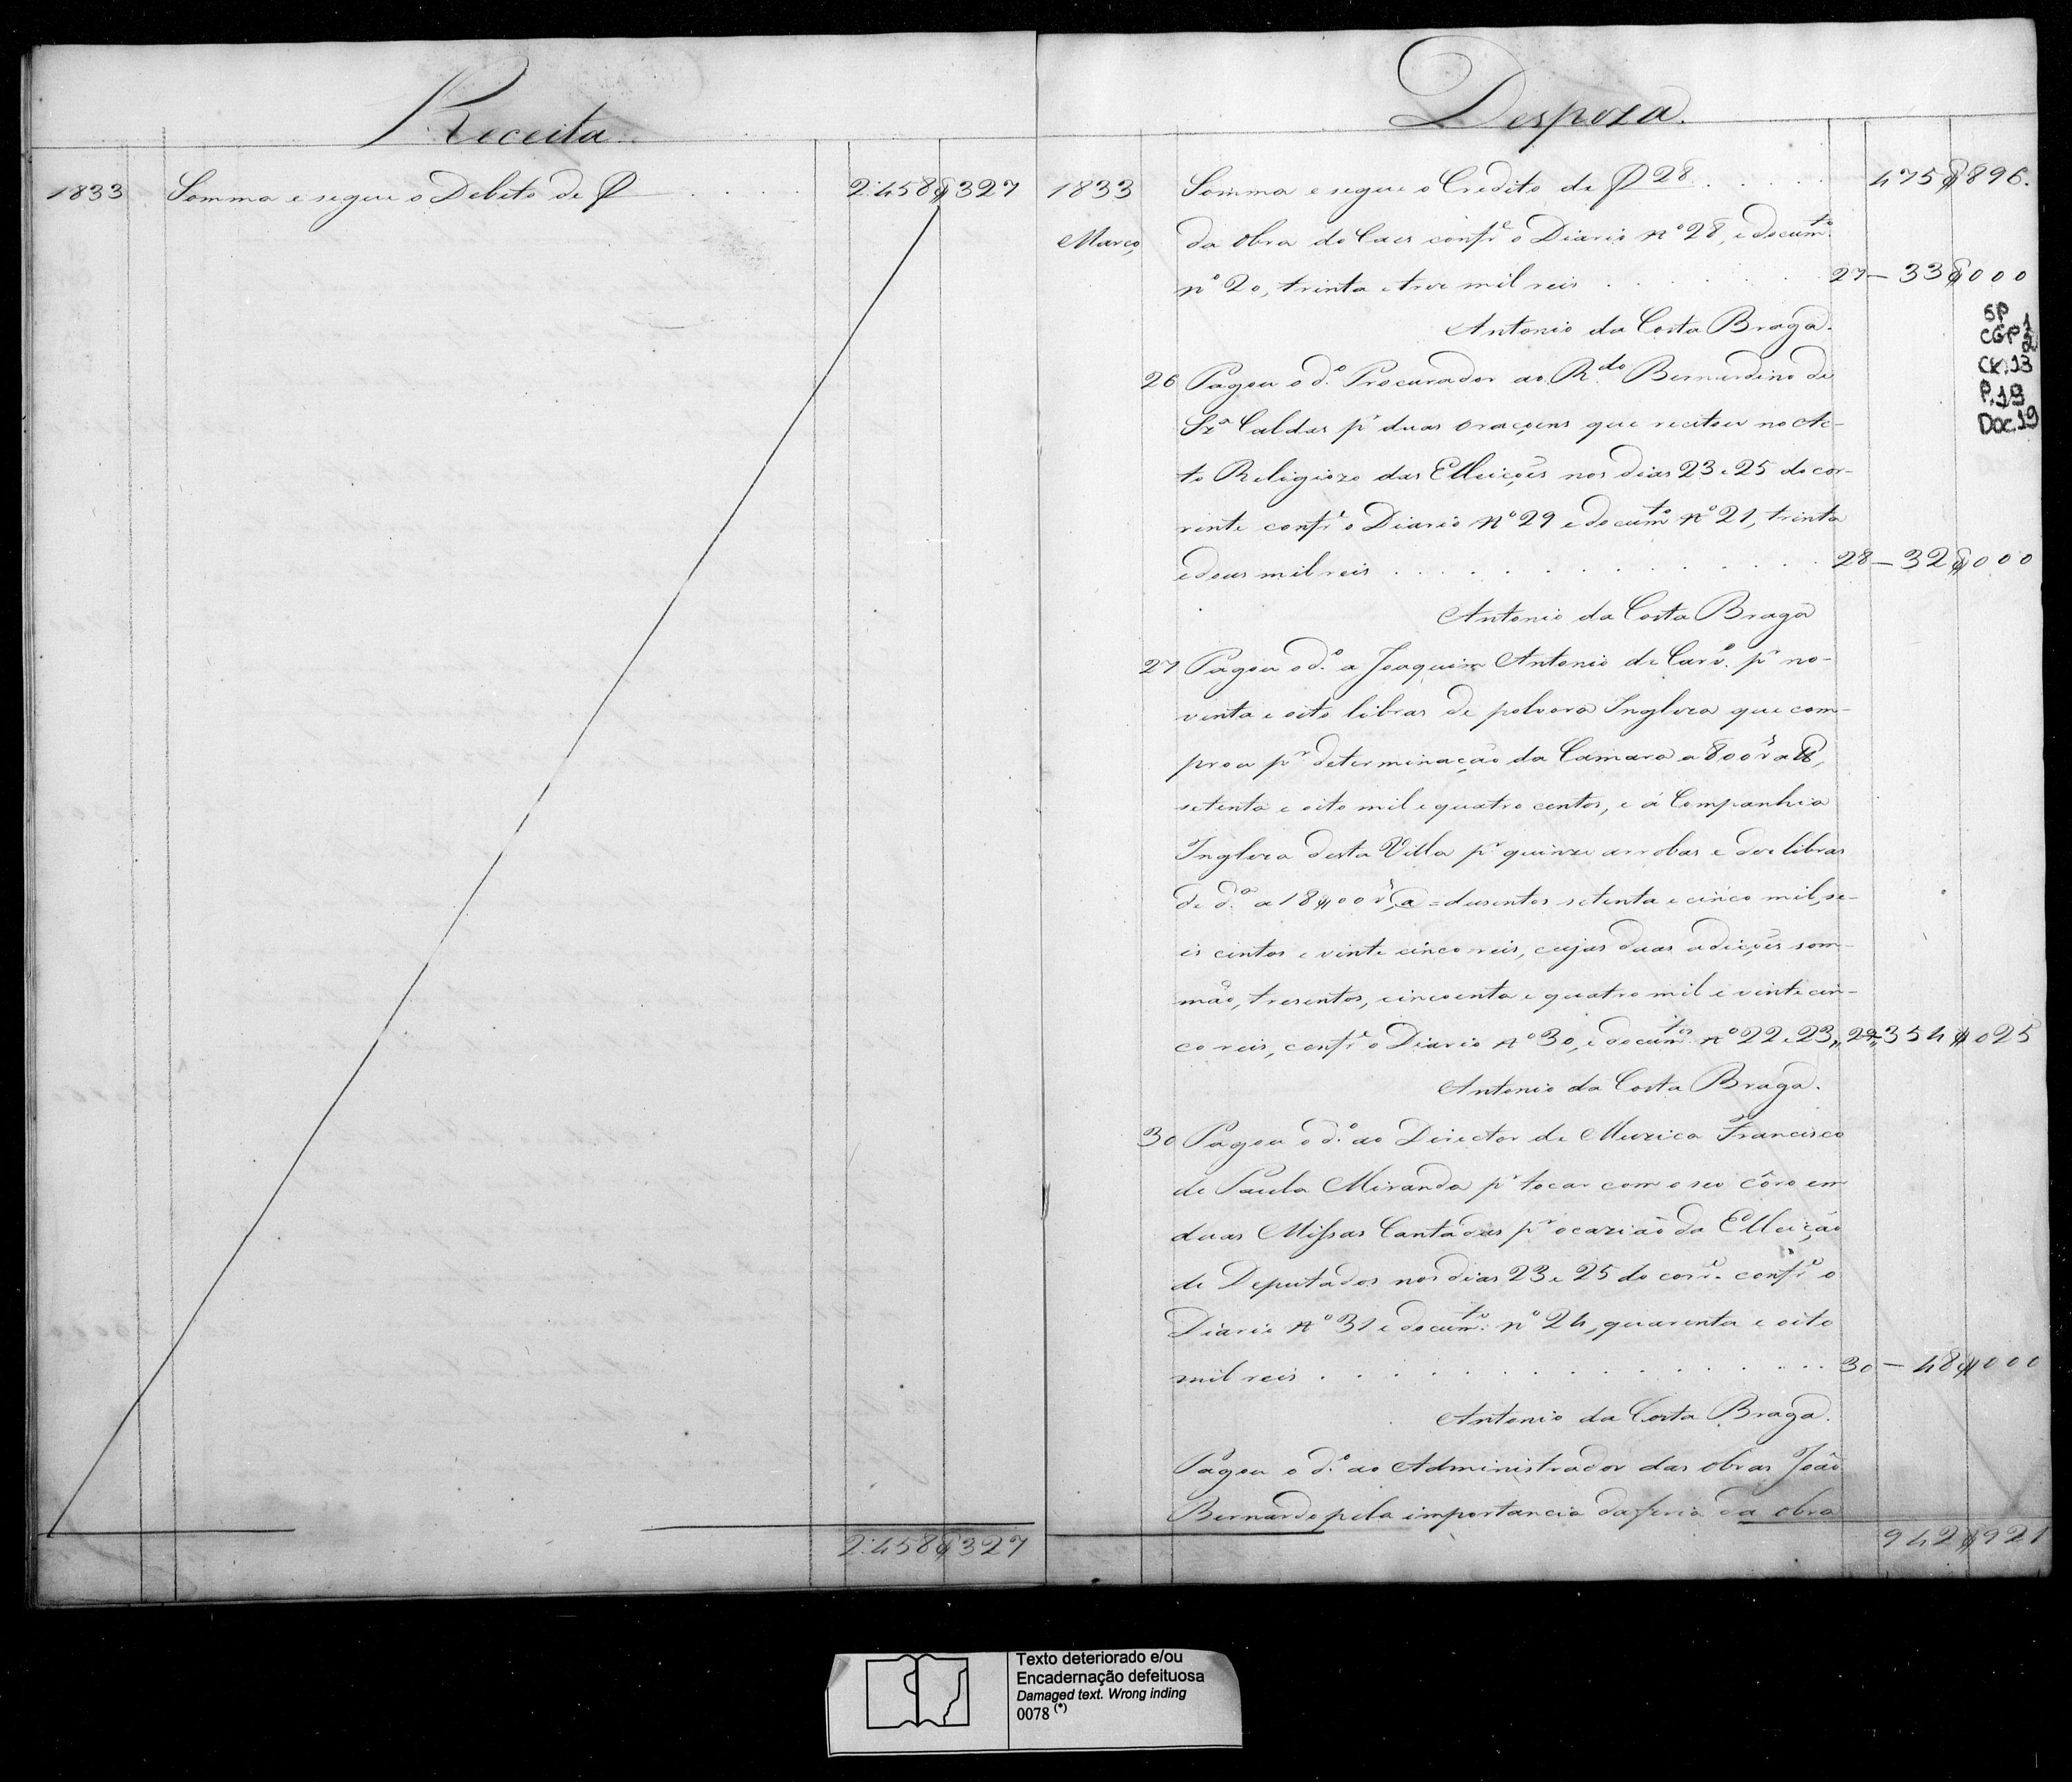 Receita
1833 Somma e segue o Debito de F . . . . 2:458$327
2:458$327
Despeza.
1833 Somma e segue o Credito de F 28 . . . . . 475$896.
Março da obra do Caes confr.e o Diario nº 28, e docum.to
nº 20, trinta e tres mil reis . . . . . 27 — 33$000
Antonio da Costa Braga.
26 Pagou o d.º Procurador ao R.do Bernardino de
Sz.a Caldas p.r duas oraçoens que recitou no Ac-
to Religiozo das Elleições nos dias 23 e 25 do cor-
rente confr.e o Diario nº 29 e docum.to nº 21, trinta
e dous mil reis . . . . . . . . . . 28 — 32$000
Antonio da Costa Braga
27 Pagou o d.º a Joaquim Antonio de Carv.º p.r no-
venta e oito libras de polvora Ingleza que com-
prou p.r determinação da Camara a 800 r.s a lb,
setenta e oito mil e quatro centos, e á Companhia
Ingleza desta Villa p.r quinze arrobas e doze libras
de d.a a 18$00 r.s @ = dusentos setenta e cinco mil, se-
is centos e vinte cinco reis, cujas duas adições som-
mão, tresentos, cincoenta e quatro mil e vinte cin-
co reis, confr.e o Diario nº 30, e docum.tos nº 22 e 23,, 29 — 354$025
Antonio da Costa Braga.
30 Pagou o d.º ao Director de Muzica Francisco
de Paula Miranda p.r tocar com o seo côro em
duas Missas Cantadas p.r ocazião da Elleição
de Deputados nos dias 23 e 25 do corr.e confr.e o
Diario nº 31 e docum.to nº 24, quarenta e oito
mil reis . . . . . . . . . . . . 30 — 48$000
Antonio da Costa Braga.
Pagou o d.º ao Administrador das obras João
Bernardo pela importancia da feria da obra
942$921
SP
CGP 1
2
CX.13
P.19
Doc.19
Texto deteriorado e/ou
Encadernação defeituosa
Damaged text. Wrong inding
0078 (*)